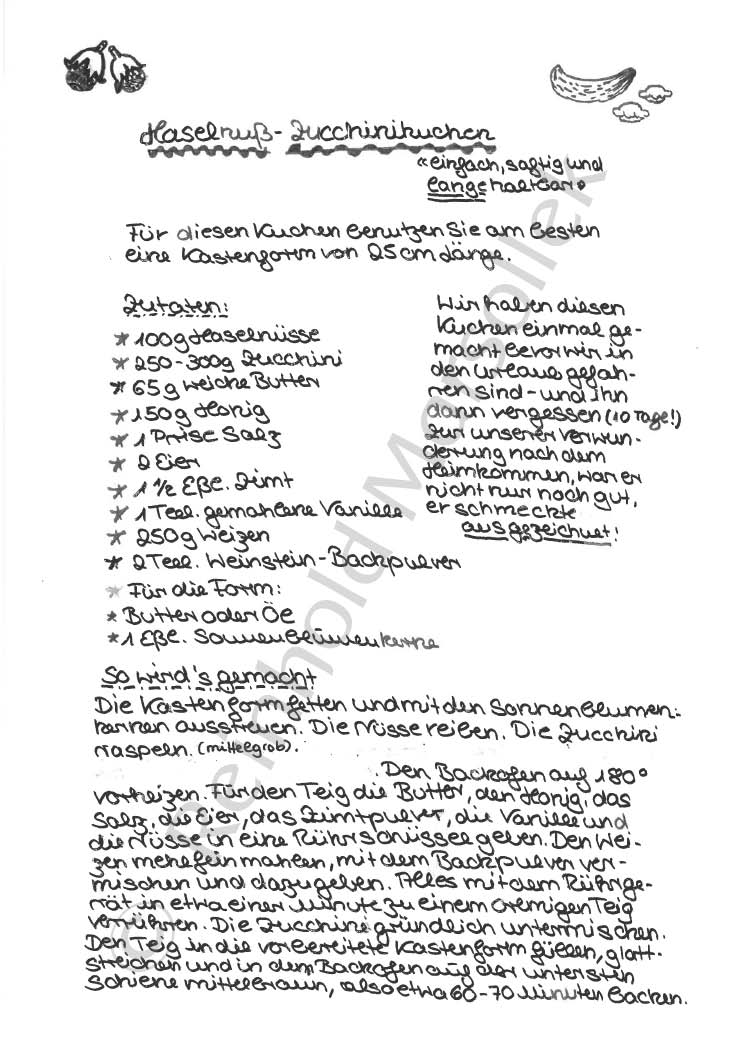 Haselnuß-Zucchinikuchen
«einfach, saftig und
lange haltbar»
Für diesen Kuchen benutzen Sie am besten
eine Kastenform von 25cm Länge.
Zutaten:
* 100g Haselnüsse
* 250-300g Zucchini
* 65g weiche Butter
* 150g Honig
* 1 Prise Salz
* 2 Eier
* 1 1/2 Eßl. Zimt
* 1 Teel. gemahlene Vanille
* 250g Weizen
* 2 Teel. Weinstein-Backpulver
* Für die Form:
* Butter oder Öl
* 1 Eßl. Sonnenblumenkerne
Wir haben diesen
Kuchen einmal ge-
macht bevor wir in
den Urlaub gefah-
ren sind - und ihn
dann vergessen (10 Tage!)
Zur unserer Verwun-
derung nach dem
Heimkommen, war er
nicht nur noch gut,
er schmeckte
ausgezeichnet!
So wird's gemacht
Die Kastenform fetten und mit den Sonnenblumen-
kernen ausstreuen. Die Nüsse reiben. Die Zucchini
raspeln. (mittelgrob).
Den Backofen auf 180°
vorheizen. Für den Teig die Butter, den Honig, das
Salz, die Eier, das Zimtpulver, die Vanille und
die Nüsse in eine Rührschüssel geben. Den Wei-
zen mehlfein mahlen, mit dem Backpulver ver-
mischen und dazugeben. Alles mit dem Rührge-
rät in etwa einer Minute zu einem cremigen Teig
verrühren. Die Zucchini gründlich untermischen.
Den Teig in die vorbereitete Kastenform füllen, glatt-
streichen und in dem Backofen auf der untersten
Schiene mittelbraun, also etwa 60-70 Minuten backen.
© Reinhold Marsollek